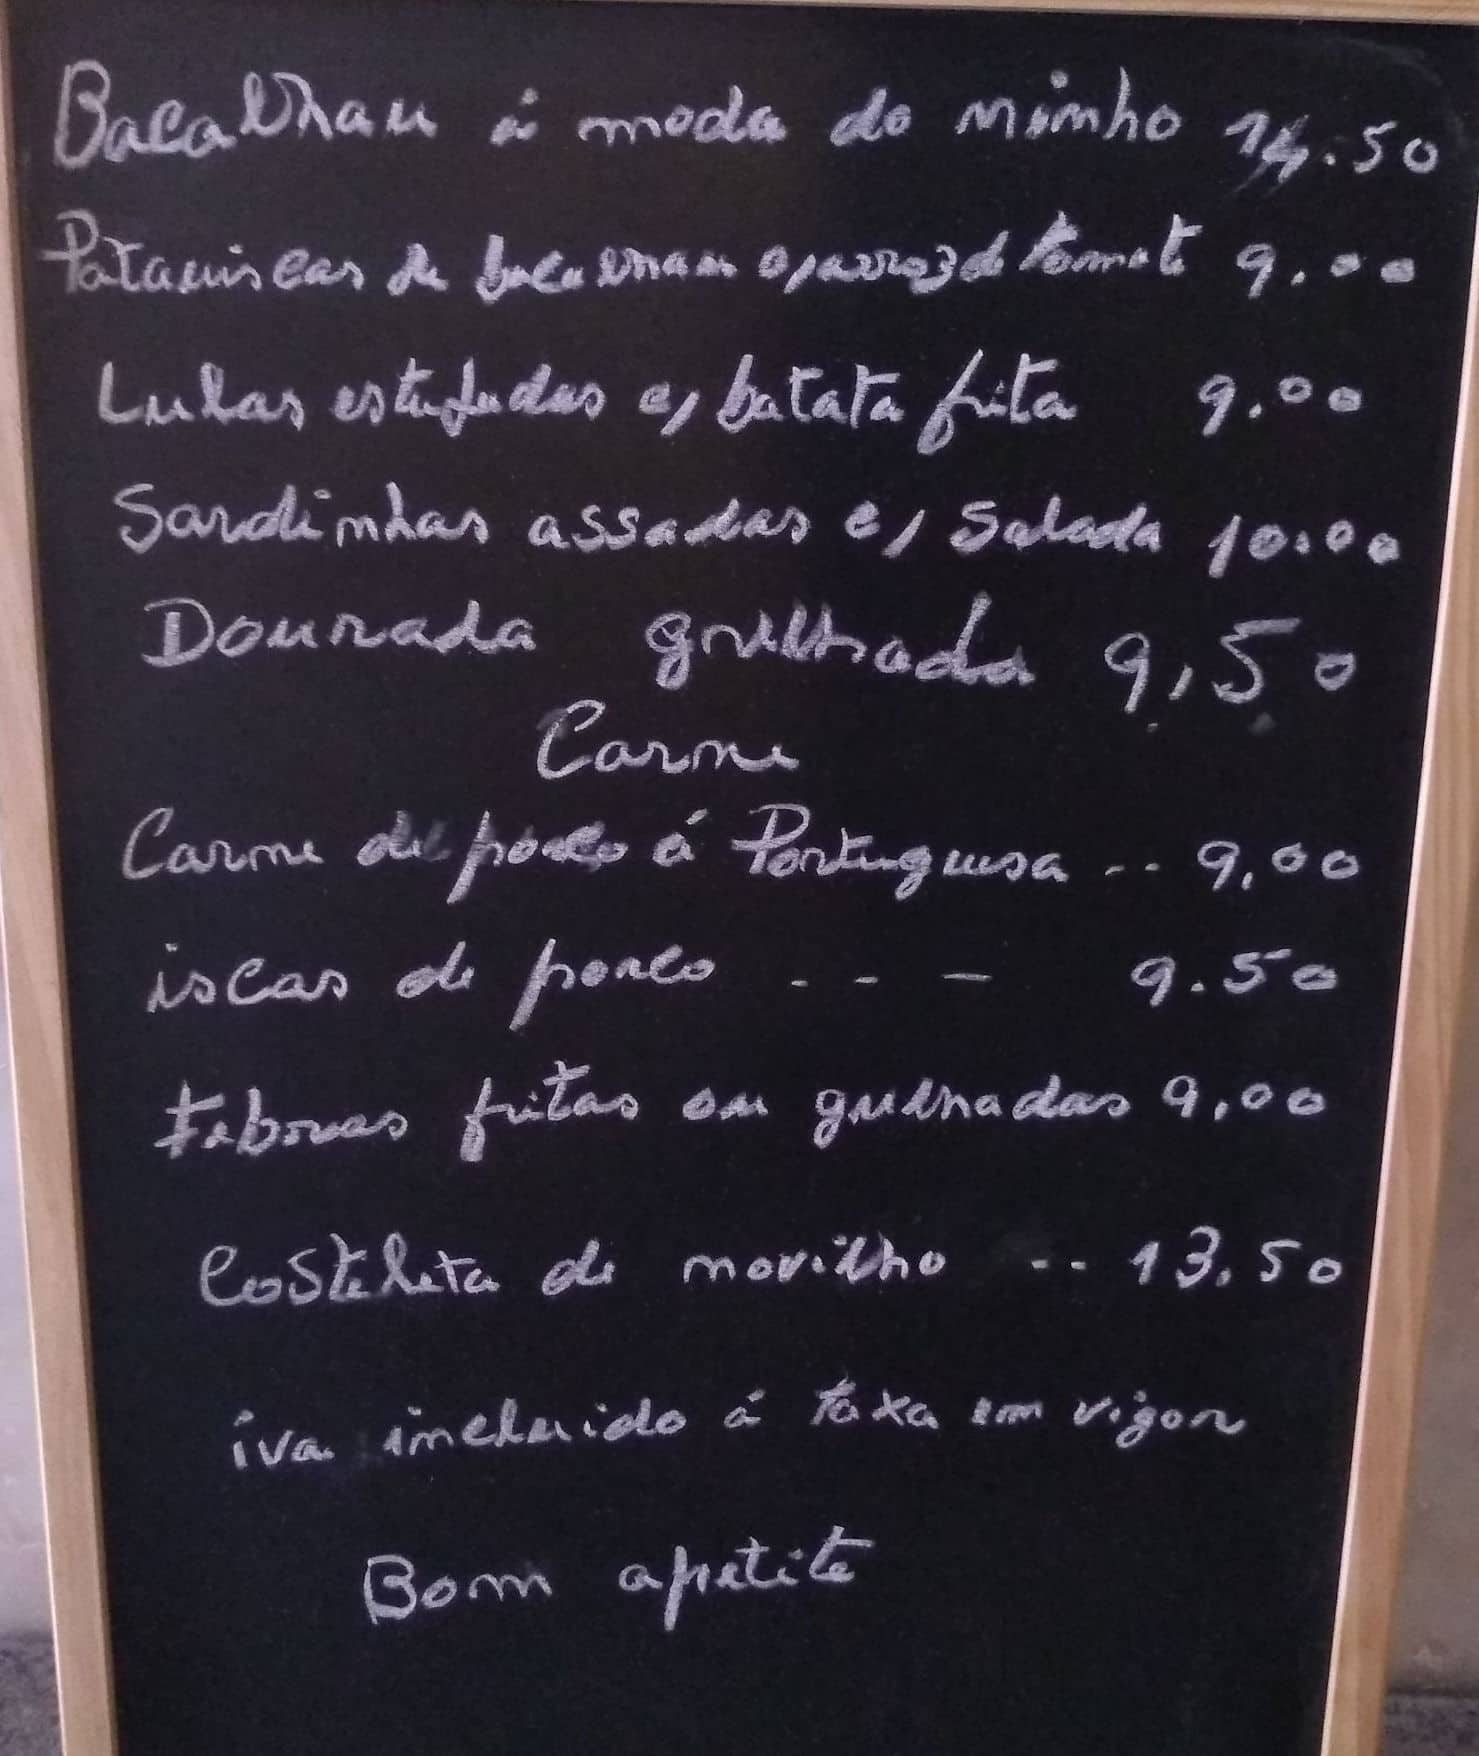 Bacalhau á moda do minho 14.50
Pataniscas de bacalhau c/arroz de tomate 9.00
Lulas estufadas c/ batata frita 9.00
Sardinhas assadas c/ Salada 10.00
Dourada grilhada 9,50
Carne
Carne de porco á Portuguesa .. 9,00
iscas de porco . - - 9.50
Febras fritas ou grelhadas 9,00
Costeleta de novilho .. 13.50
iva incluido á taxa em vigor
Bom apetite